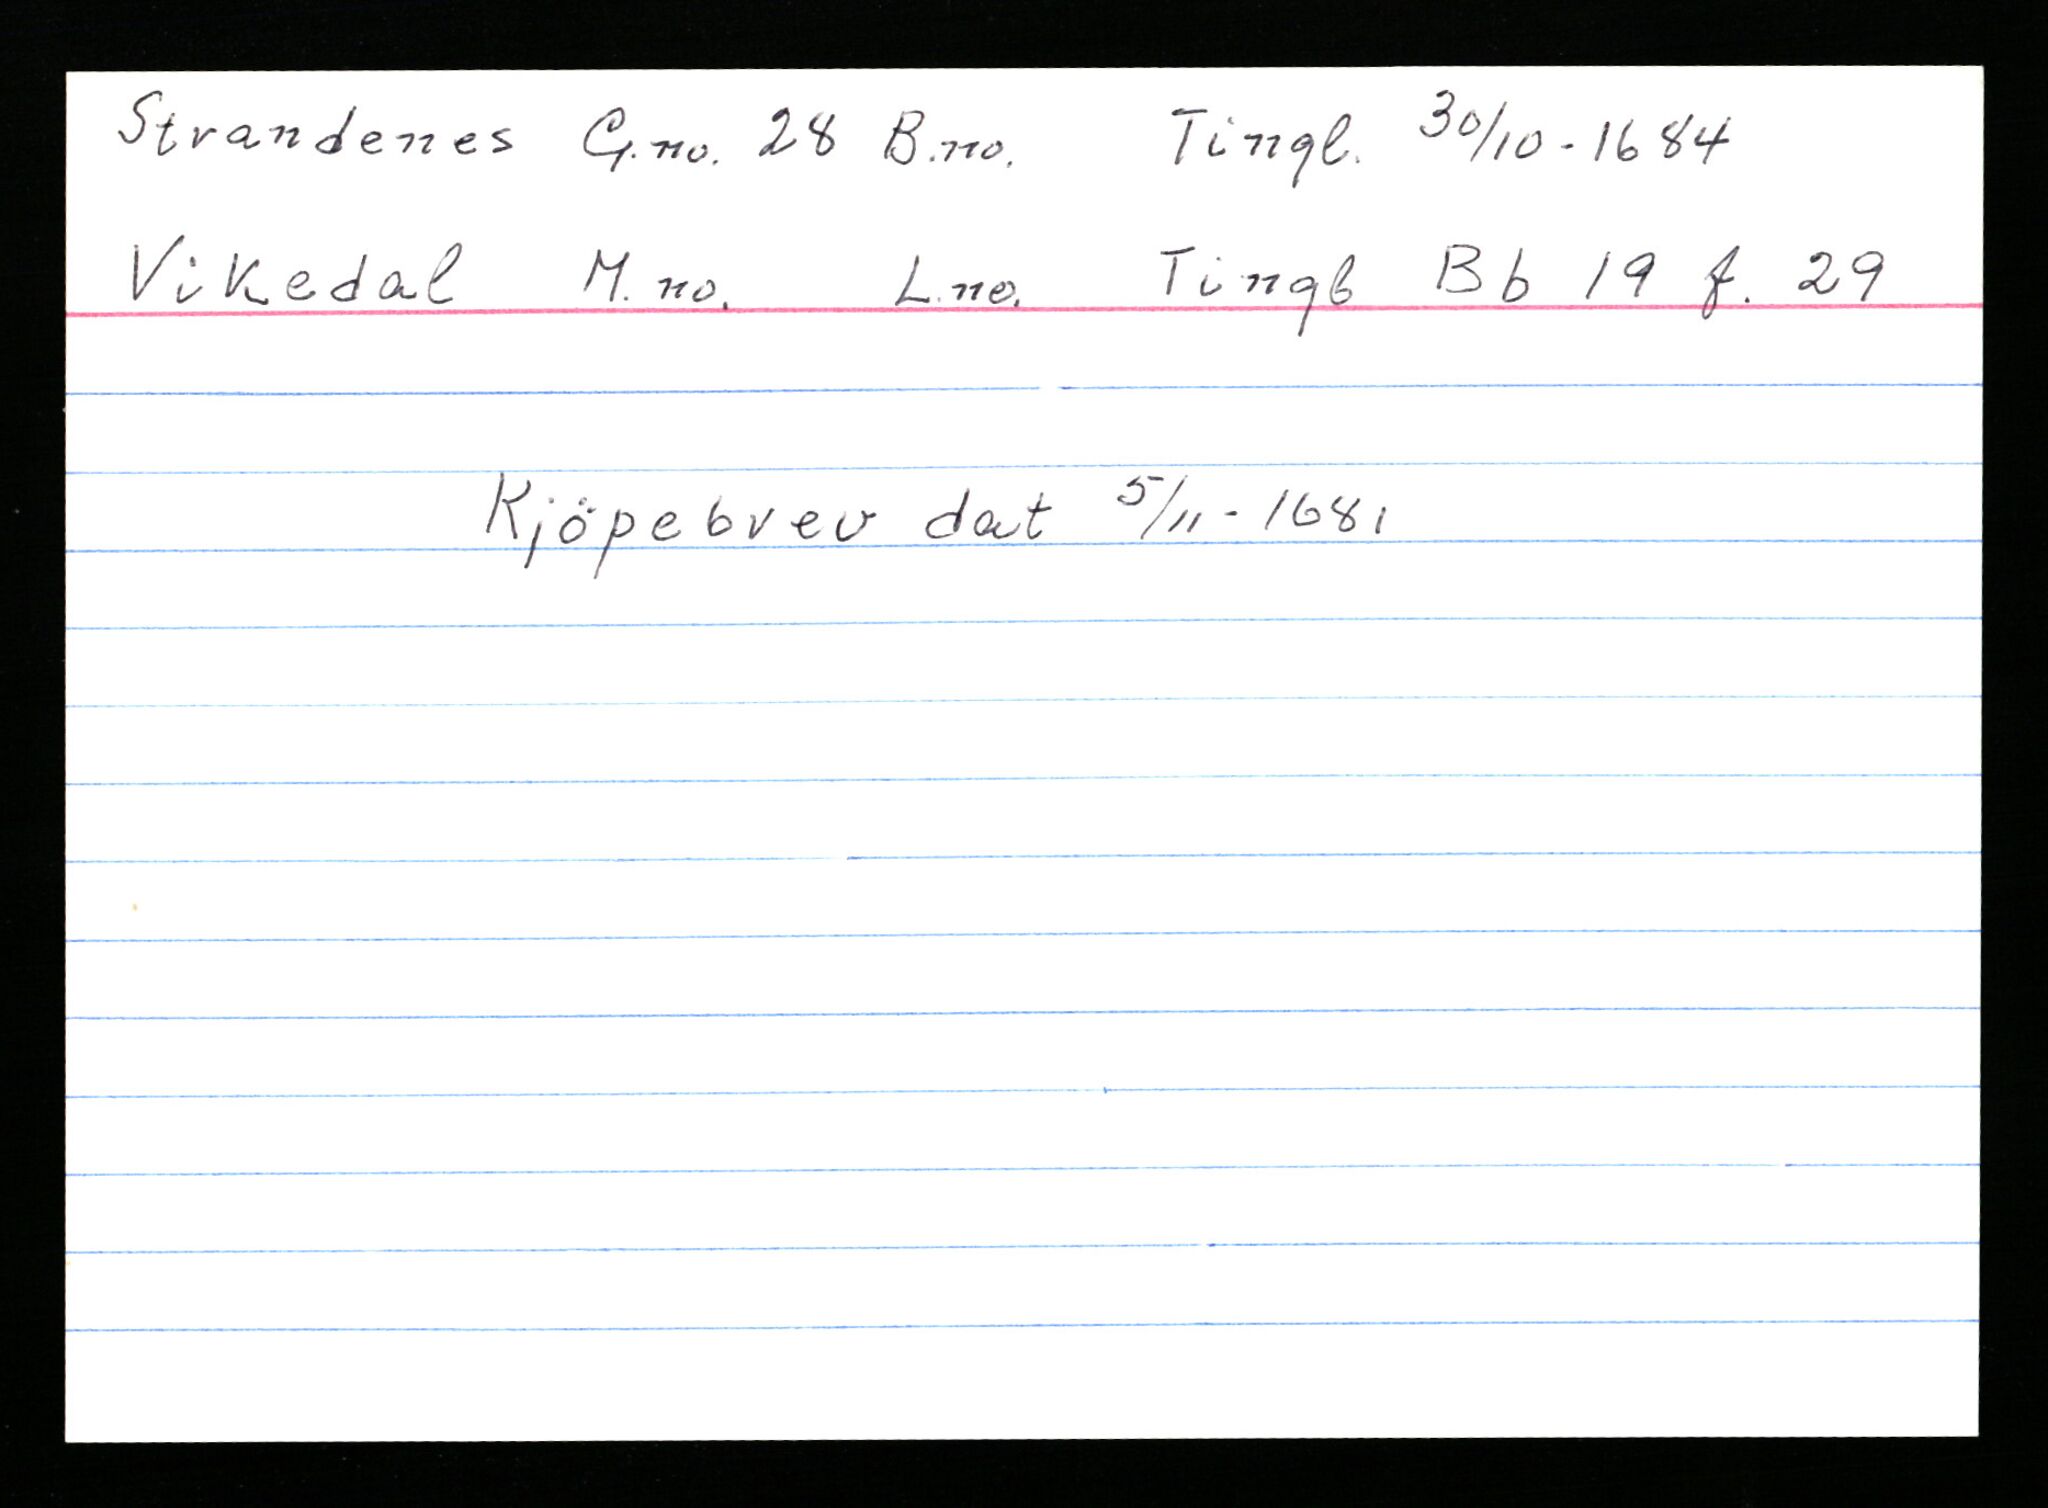 Strandenes G.no. 28 B.no. Tingl. 30/10-1684
Vikedal M.no. L.no. Tingb Bb 19 f. 29
Kjöpebrev dat 5/11-1681